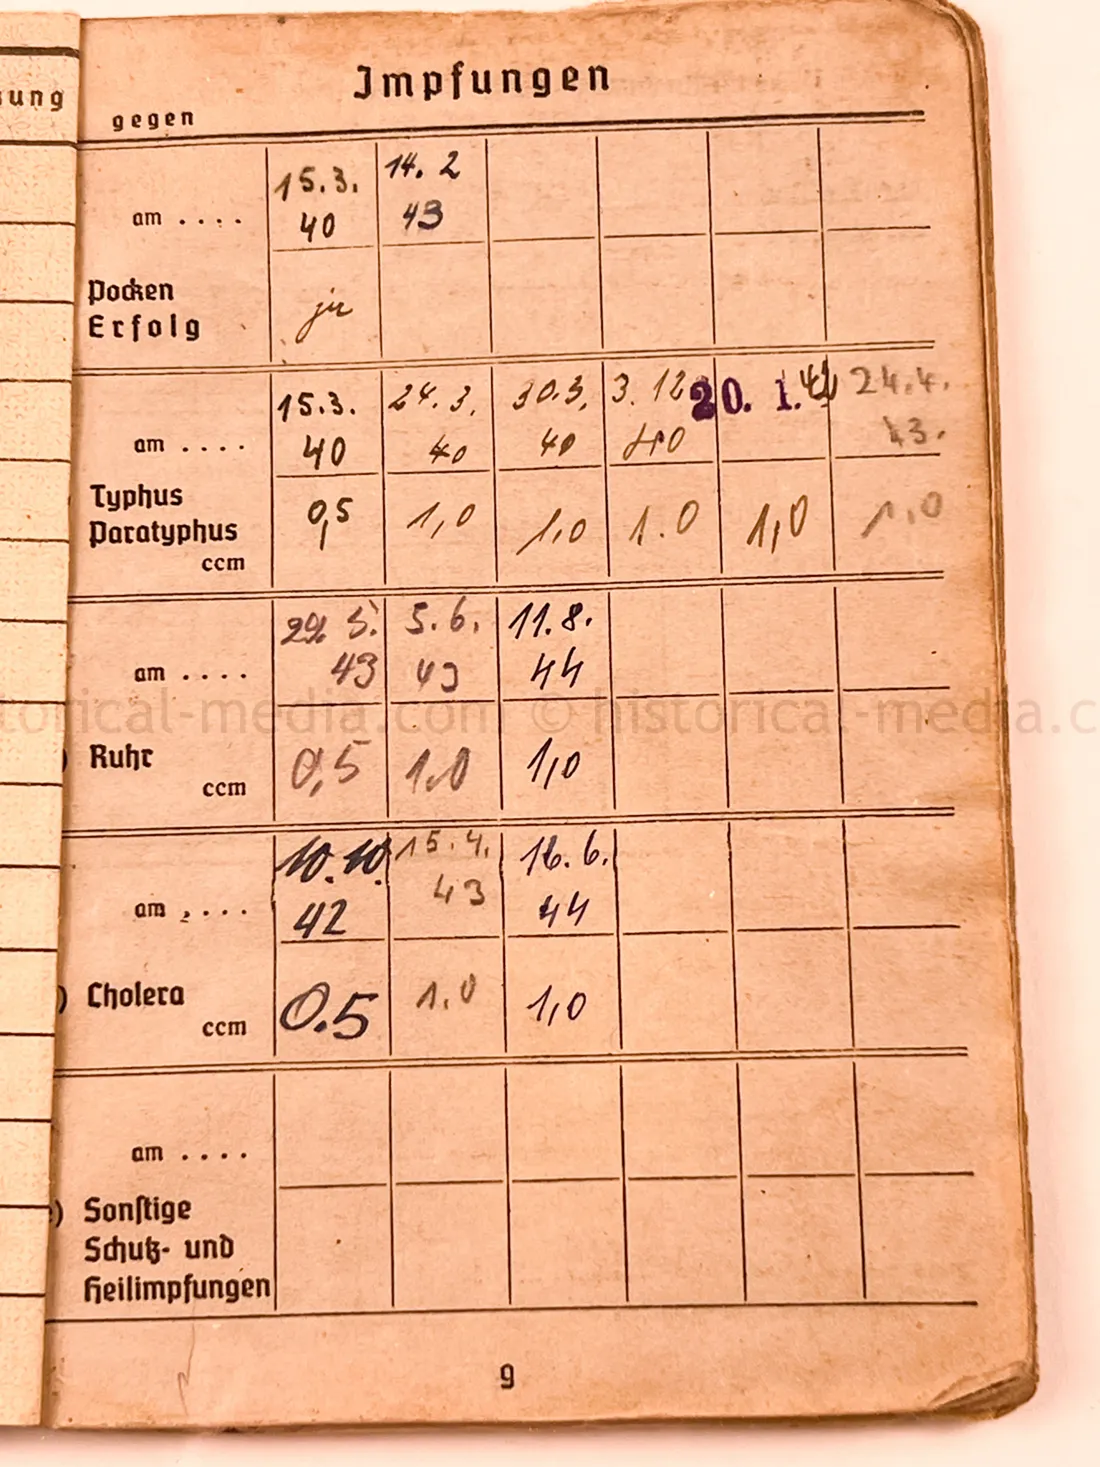 Impfungen
gegen
15.3. 14. 2
am . . . . 40 43
Pocken
Erfolg ja
15.3. 24. 3. 30.3. 3. 12. 20. 1. 42 24.4.
am . . . . 40 40 40 40 43.
Typhus
Paratyphus 0,5 1,0 1,0 1.0 1,0 1,0
ccm
29. 5. 5. 6. 11. 8.
am . . . . 43 43 44
© historical-media.c
Ruhr 0,5 1,0 1,0
ccm
10. 10. 15. 4. 16. 6.
am . . . . 42 43 44
) Cholera 0.5 1.0 1,0
ccm
am . . . .
) Sonstige
Schutz- und
Heilimpfungen
9